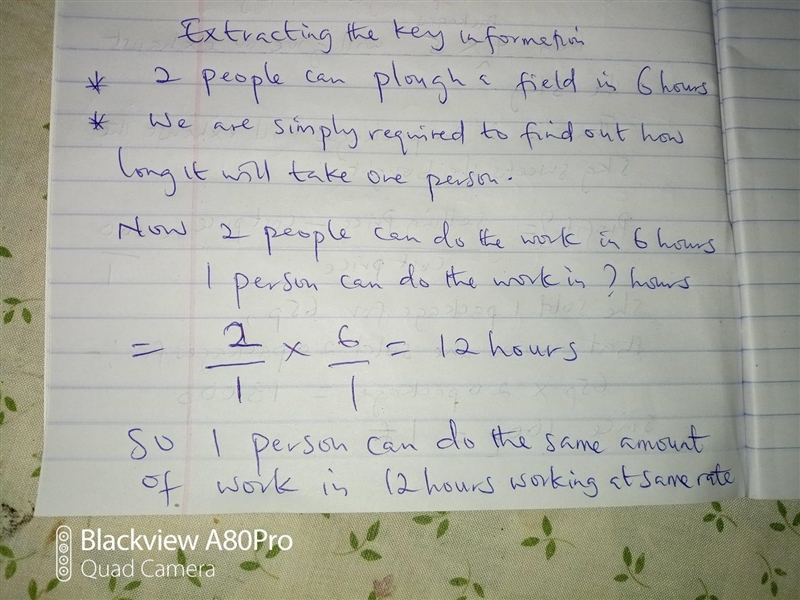 Extracting the key information
* 2 people can plough a field in 6 hours
* We are simply required to find out how
long it will take one person.
Now 2 people can do the work in 6 hours
1 person can do the work in ? hours
= 2/1 × 6/1 = 12 hours
So 1 person can do the same amount
of work in 12 hours working at same rate
Blackview A80Pro
Quad Camera